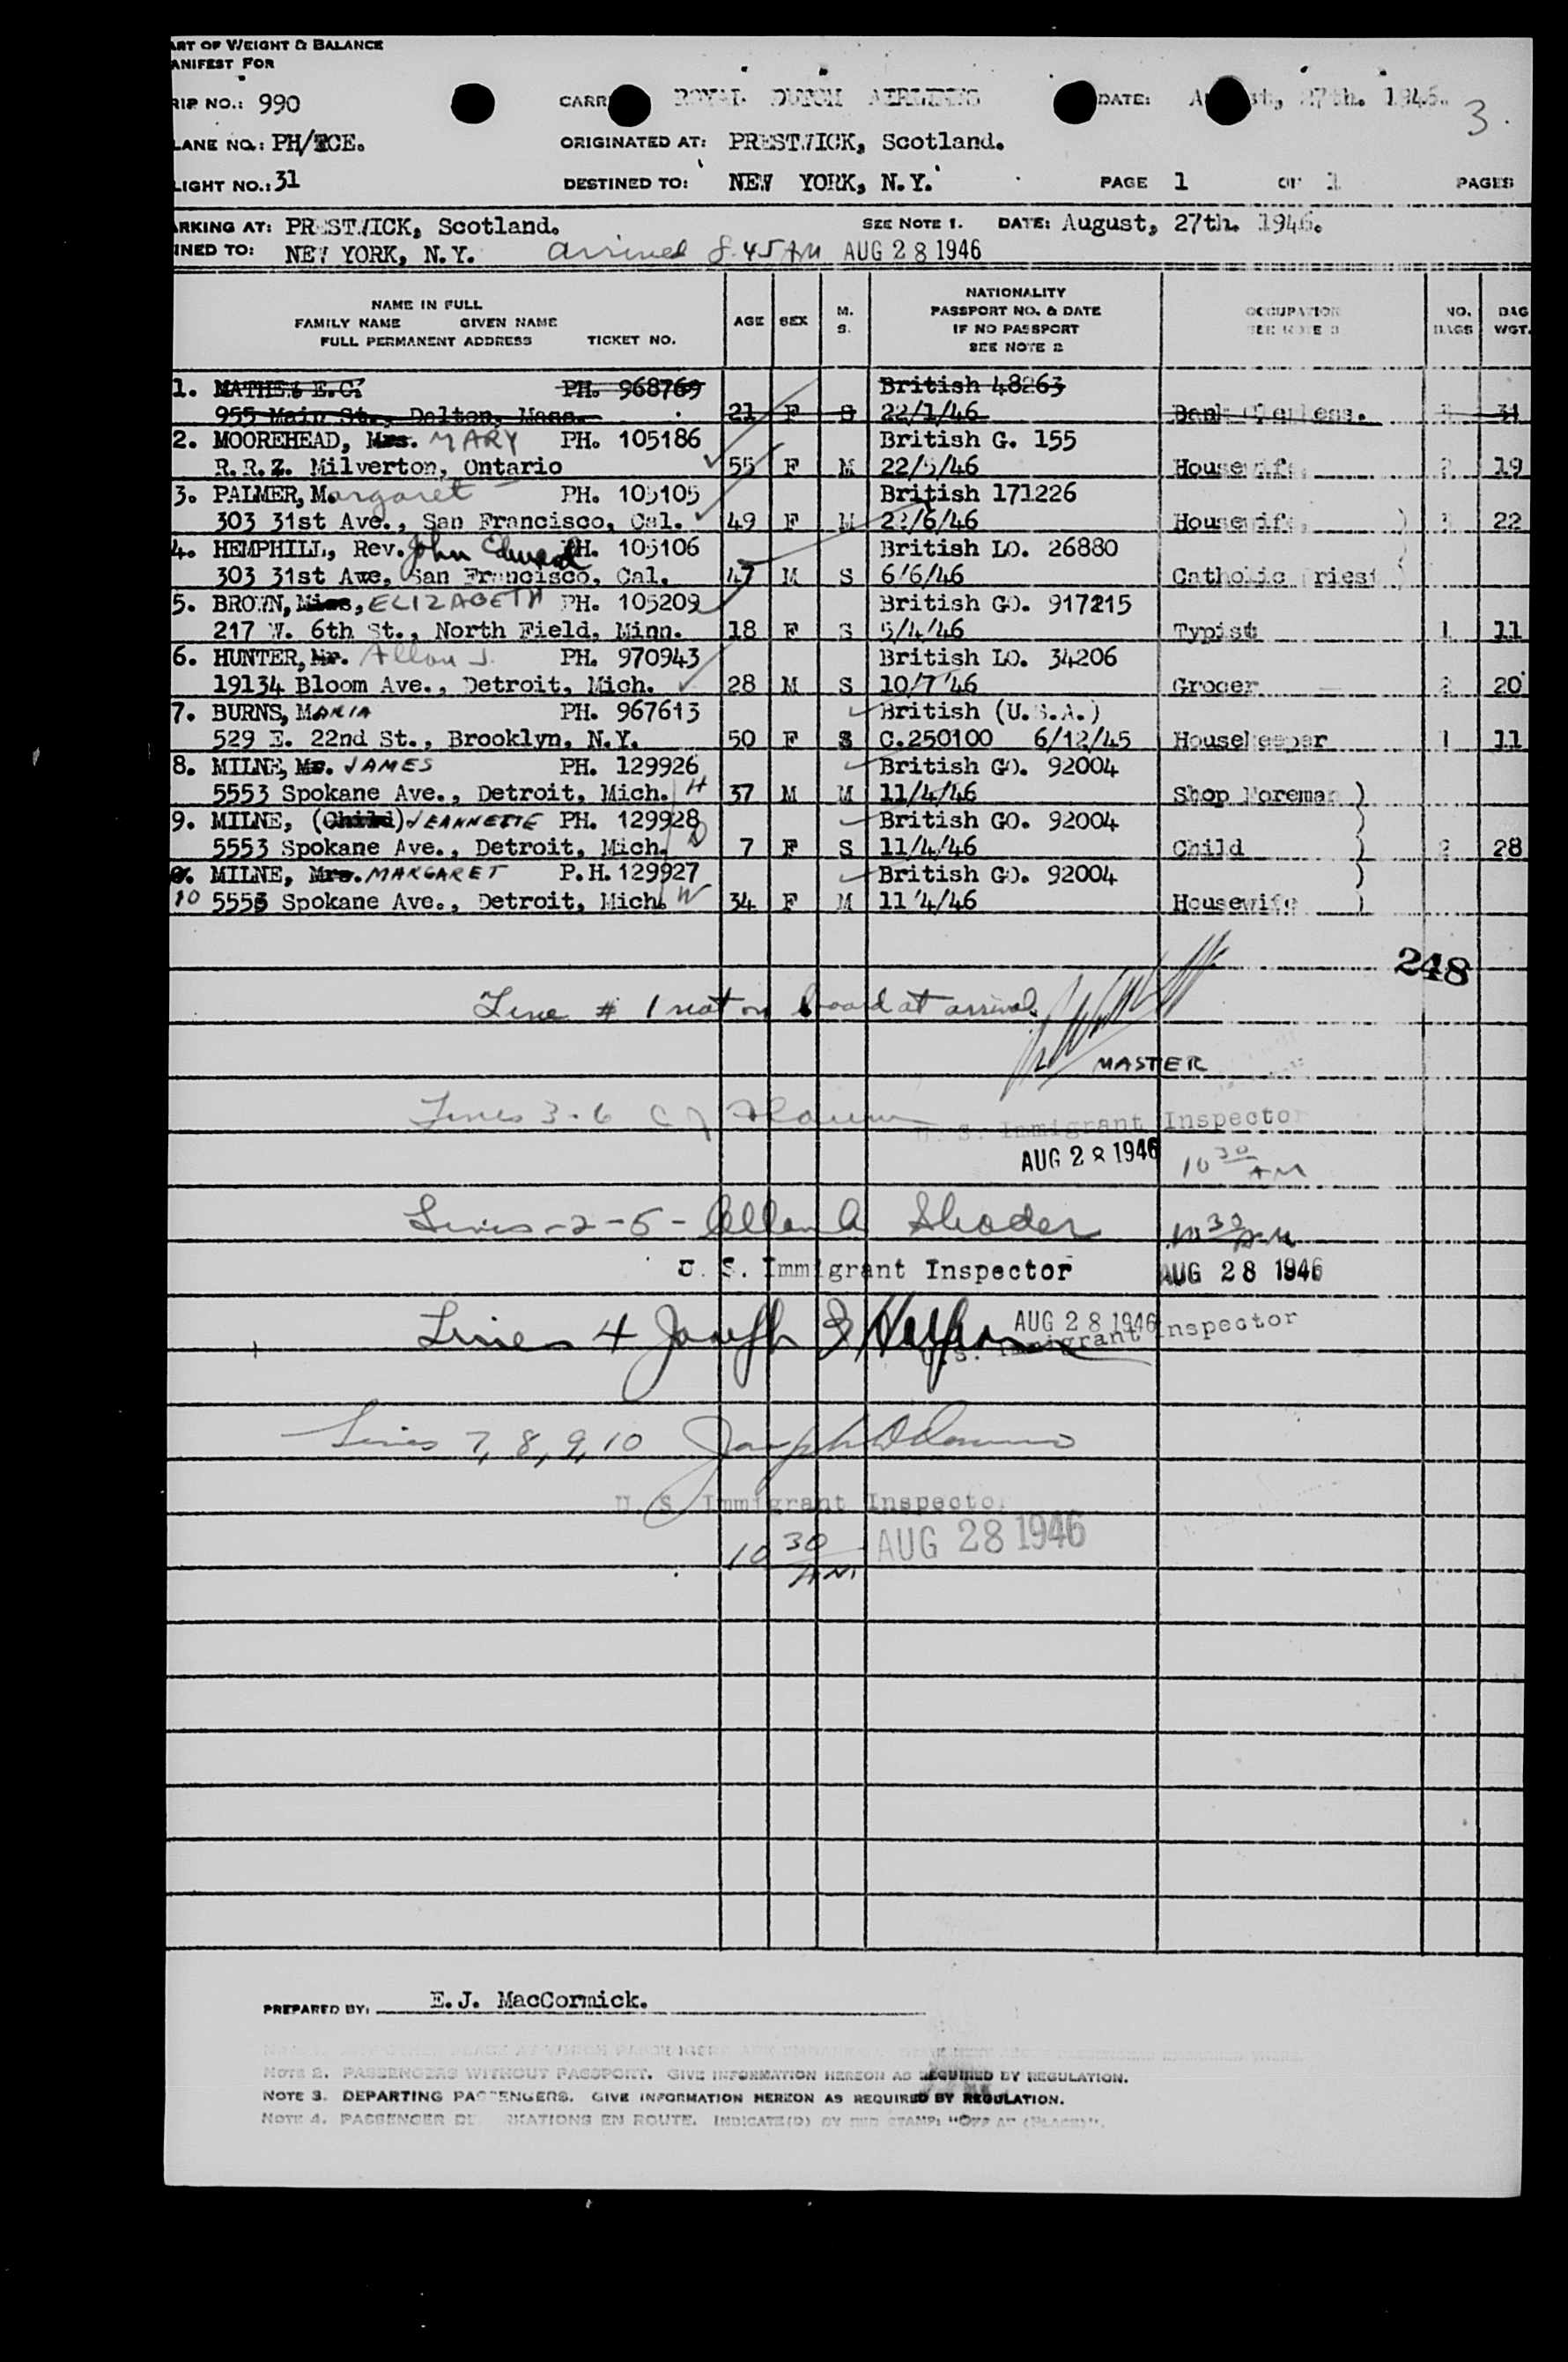 ART OF WEIGHT & BALANCE
ANIFEST FOR
RIP NO.: 990 CARR ROYAL DUTCH AIRLINES DATE: A st, 27th. 1946. 3.
LANE NO.: PH/TCE. ORIGINATED AT: PRESTWICK, Scotland.
LIGHT NO.: 31 DESTINED TO: NEW YORK, N.Y. PAGE 1 OF 1 PAGES
ARKING AT: PRESTWICK, Scotland. SEE NOTE 1. DATE: August, 27th. 1946.
INED TO: NEW YORK, N.Y. arrived 8.45 AM AUG 28 1946
NAME IN FULL
FAMILY NAME GIVEN NAME
FULL PERMANENT ADDRESS TICKET NO. AGE SEX M. S. NATIONALITY PASSPORT NO. & DATE IF NO PASSPORT SEE NOTE 2 OCCUPATION SEE NOTE 3 NO. BAGS BAG WGT.
1. E.C. PH. 968769 British 48263
955 Main St., Dalton, Mass. 21 F S 22/1/46 Bank 31
2. MOOREHEAD, Mrs. MARY PH. 105186 British G. 155
R.R.2. Milverton, Ontario 55 F M 22/5/46 Housewife, 2 19
3. PALMER, Margaret PH. 105105 British 171226
303 31st Ave., San Francisco, Cal. 49 F M 22/6/46 Housewife, ) 22
4. HEMPHILL, Rev. John Edward PH. 105106 British LO. 26880
303 31st Ave, San Francisco, Cal. 47 M S 6/6/46 Catholic Priest )
5. BROWN, Miss, ELIZABETH PH. 105209 British GO. 917215
217 W. 6th St., North Field, Minn. 18 F S 5/4/46 Typist 1 11
6. HUNTER, Mr. Allan J. PH. 970943 British LO. 34206
19134 Bloom Ave., Detroit, Mich. 28 M S 10/7/46 Grocer 2 20
7. BURNS, MARIA PH. 967613 British (U.S.A.)
529 E. 22nd St., Brooklyn, N.Y. 50 F S C.250100 6/12/45 Housekeeper 1 11
8. MILNE, JAMES PH. 129926 British GO. 92004
5553 Spokane Ave., Detroit, Mich. H 37 M M 11/4/46 Shop Foreman )
9. MILNE, (Child) JEANNETTE PH. 129928 British GO. 92004
5553 Spokane Ave., Detroit, Mich. D 7 F S 11/4/46 Child ) 2 28
MILNE, Mrs. MARGARET P.H. 129927 British GO. 92004
10 5553 Spokane Ave., Detroit, Mich. W 34 F M 11/4/46 Housewife )
248
Line # 1 not on board at arrival.
MASTER
Lines 3-6 U.S. Immigrant Inspector
AUG 28 1946 10 30 AM
Lines -2-5- Allen A Shoder 10 30 AM
U. S. Immigrant Inspector AUG 28 1946
Lines 4 Joseph AUG 28 1946
U.S. Immigrant Inspector
Lines 7, 8, 9, 10 Joseph
U. S. Immigrant Inspector
10 30 AM AUG 28 1946
PREPARED BY: E.J. MacCormick.
NOTE 2. PASSENGERS WITHOUT PASSPORT. GIVE INFORMATION HEREON AS REQUIRED BY REGULATION.
NOTE 3. DEPARTING PASSENGERS. GIVE INFORMATION HEREON AS REQUIRED BY REGULATION.
NOTE 4. PASSENGER EN ROUTE. INDICATE(D) BY STAMP: "OFF AT (PLACE)".